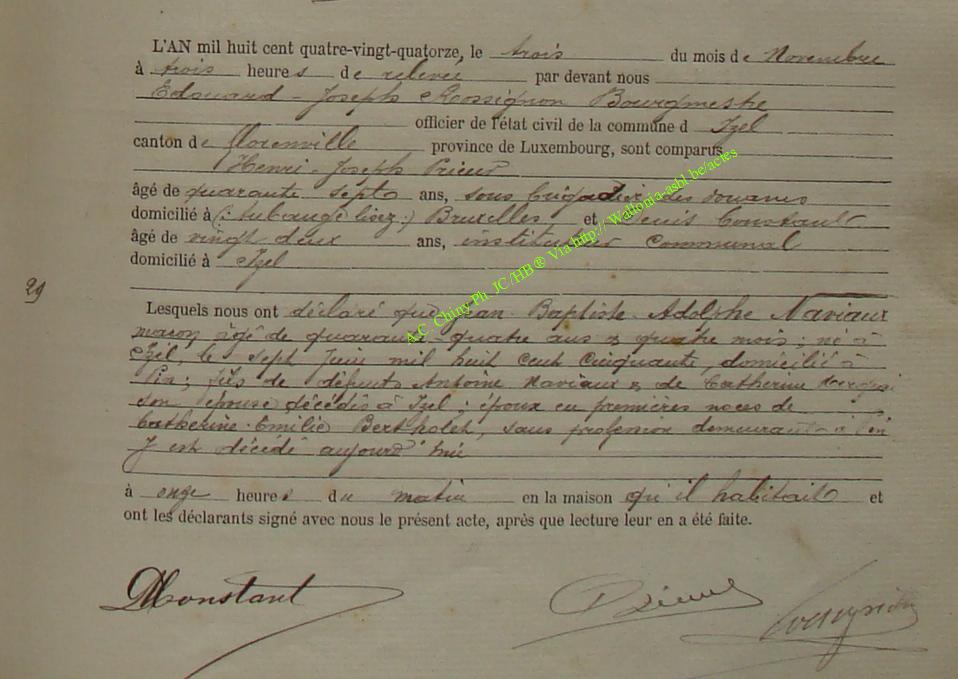 L'AN mil huit cent quatre-vingt-quatorze, le trois du mois de Novembre
à trois heures de relevée par devant nous
Edouard-Joseph Rossignon Bourgmestre
officier de l'état civil de la commune d Izel
canton de Florenville province de Luxembourg, sont comparus
Henri-Joseph Prieur
âgé de quarante sept ans, sous brigadier des douanes
domicilié à (: Aubange lisez :) Bruxelles et Constant
âgé de vingt deux ans, instituteur communal
domicilié à Izel
29
Lesquels nous ont déclaré que Jean Baptiste Adolphe Naviaux
maçon âgé de quarante-quatre ans & quatre mois ; né à
Izel, le sept Juin mil huit cent cinquante, domicilié à
Pin ; fils de défunts Antoine Naviaux & de Catherine
son épouse décédés à Izel ; époux en premières noces de
Catherine-Emilie Bertholet, sans profession demeurant à Pin
y est décédé aujourd'hui
à onze heures du matin en la maison qu'il habitait et
ont les déclarants signé avec nous le présent acte, après que lecture leur en a été faite.
Constant Prieur Rossignon
A.C. Chiny Ph. JC/HB® Via http:// Wallonia-asbl.be/actes